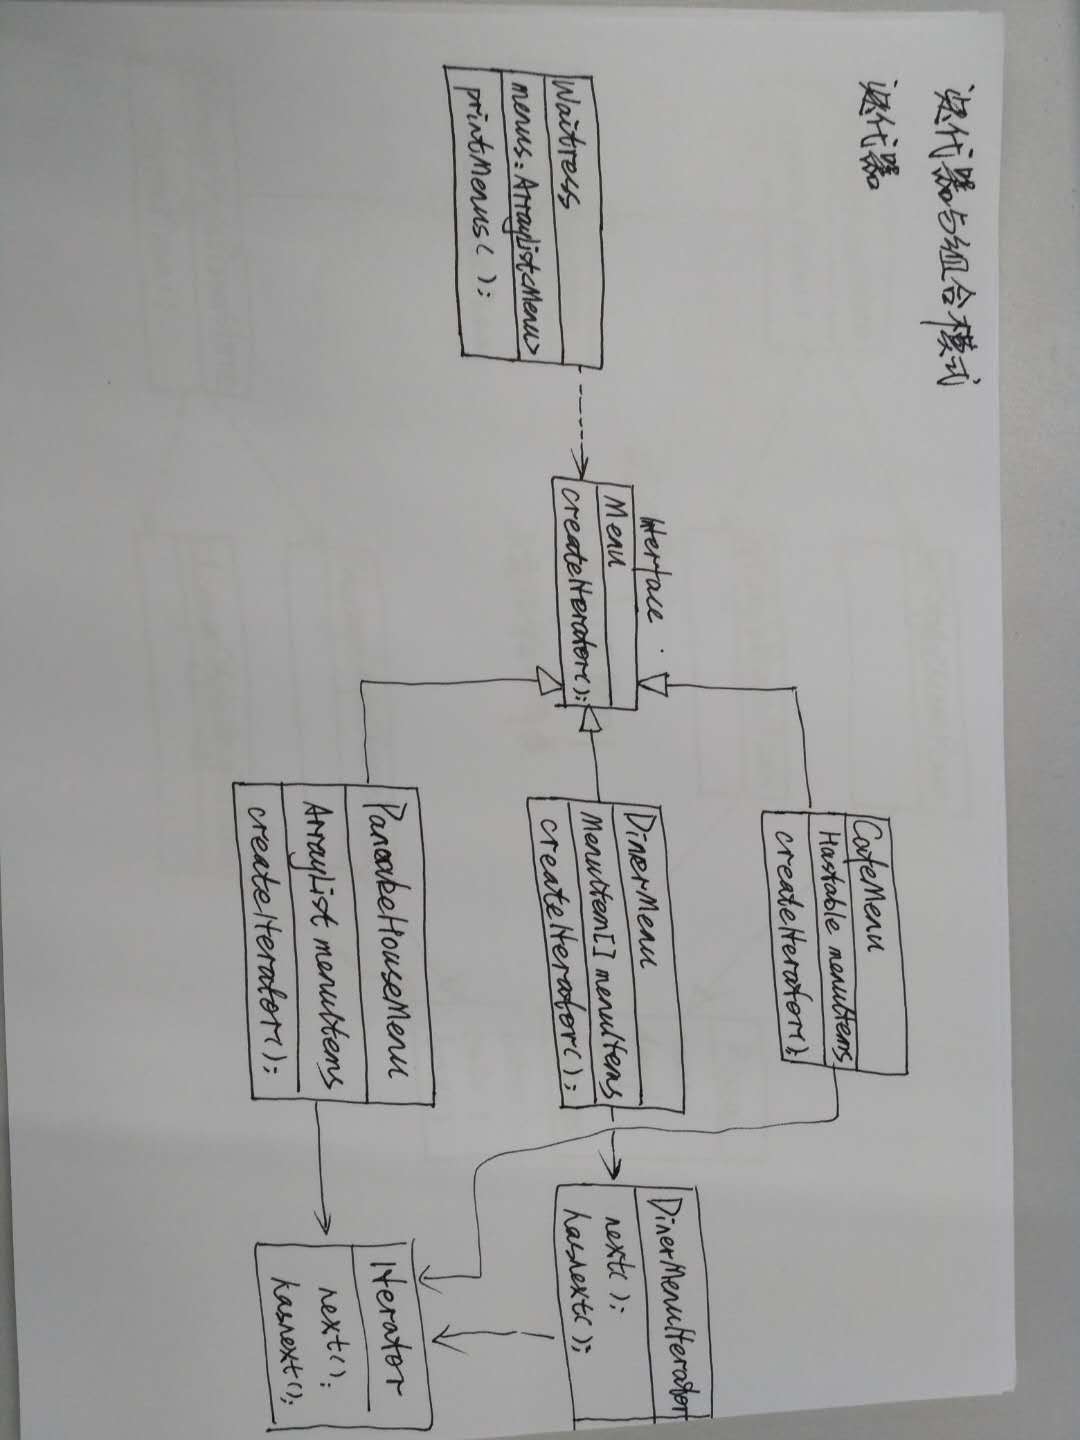 迭代器与组合模式
迭代器
Waitress
menus: ArrayList<Menu>
printMenus( );
Interface
Menu
createIterator();
CafeMenu
Hastable menuItems
createIterator();
DinerMenu
MenuItem[] menuItems
createIterator( );
PancakeHouseMenu
ArrayList menuItems
createIterator();
DinerMenuIterator
next();
hasnext();
Iterator
next();
hasnext();